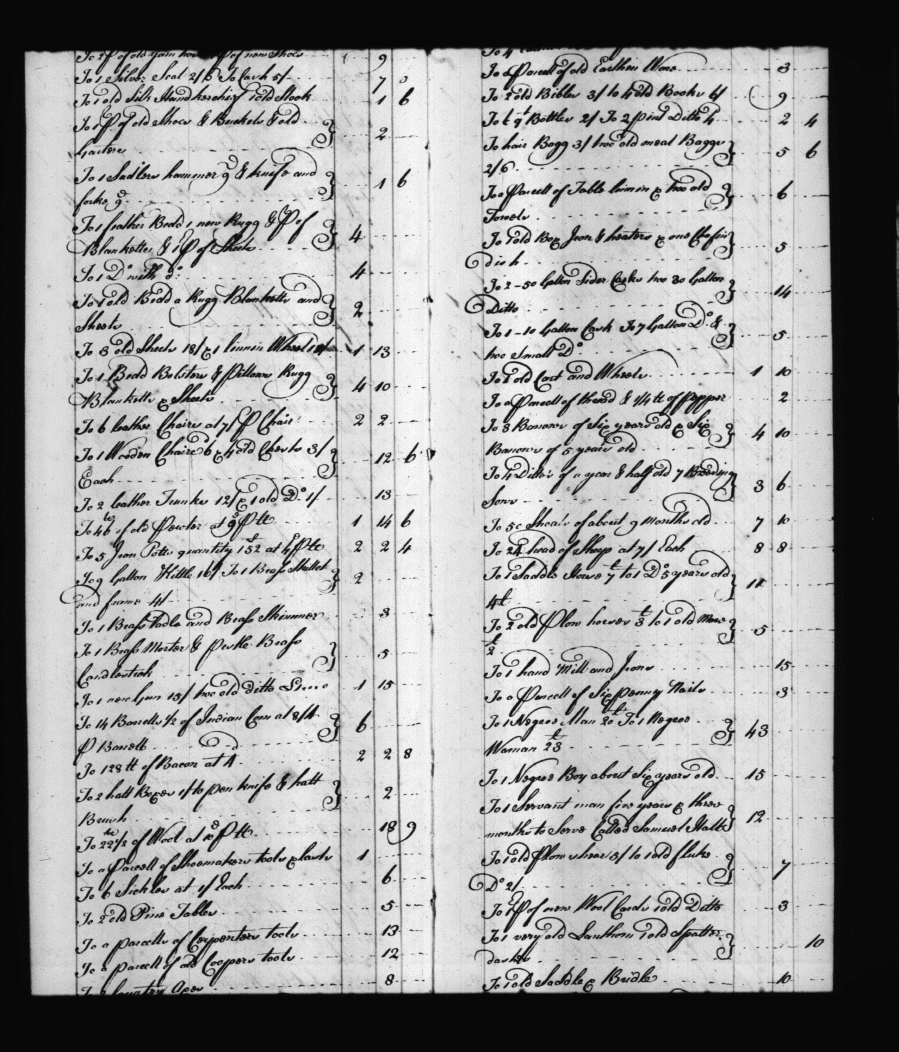 To 2 p of old yarn hose 1 p of new Shoes 9
To 1 Silver Seal 2/6 To Cash 5/ 7 6
To 1 old Silk Handkerchief 1 old Stock 1 6
To 1 P of old Shoes & Buckels & old 2
Garters
To 1 Sadlers hammer 9d & knife and 1 6
forke 9d
To 1 feather Bedd 1 new Rugg & P of 4
Blanketts & 1 P of Sheets
To 1 Do with do 4
To 1 old Bedd a Rugg Blanketts and 2
Sheets
To 3 old Sheets 18/ & 1 linnin Wheel 1 13
To 1 Bedd Bolsters & Pillows Rugg 4 10
Blanketts & Sheets
To 6 leather Chairs at 7/ P Chair 2 2
To 1 Wooden Chaire 6 & 4 old Chests 3/ 12 6
Each
To 2 leather Trunks 12/ & 1 old Do 1/ 13
To 46 lb of old Pewter at 9d P lb 1 14 6
To 5 Iron Potts quantity 152 at 4d P lb 2 2 4
To 9 Gallon Kittle 16/ To 1 Brass Skillet 2
and frame 4/
To 1 Brass Ladle and Brass Skimmer 3
To 1 Brass Morter & Pestle Brass 5
Candlestick
To 1 new Gun 15/ two old ditto 1 15
To 14 Barrells ½ of Indian Corn at 8/4 6
P Barrell
To 128 lb of Bacon at 4d 2 2 8
To 2 hatt Boxes 1/ to pen knife & hatt 2
Brush
To 22½ lb of Wool at 10d P lb 18 9
To a Parcell of Shoemakers tools & Lasts 1
To 6 Sickles at 1/ Each 6
To 2 old Pine Tables 5
To a parcells of Carpenters tools 13
To a parcell of old Coopers tools 12
Country Axes 8
To 4
To a Parcell of old Earthen Ware 3
To 2 old Bibles 3/ to 4 old Books 6/ 9
To 6 qt Bottles 2/ To 2 pint Ditto 4 2 4
To hair Bagg 3/ two old meal Baggs 5 6
2/6
To a Parcell of Table linnin & two old 6
Towels
To 1 old Box Iron & heaters & one Chafin 5
dish
To 2-50 Gallon Sider Casks two 30 Gallon 14
Ditto
To 1-10 Gallon Cask To 7 Gallon Do & 5
two Small Do
To 1 old Cart and Wheels 1 10
To a Parcell of thread & 1/4 lb of Pepper 2
To 3 Barrows of Six years old & Six 4 10
Barrows of 5 years old
To 4 Ditto's of a year & half old 7 Breeding 3 6
Sows
To 50 Shoats of about 9 Months old 7 10
To 24 head of Sheep at 7/ Each 8 8
To 1 Saddle Horse 7£ to 1 Do 5 years old 11
4£
To 2 old Plow horses 3£ to 1 old Mare 5
2£
To 1 hand Mill and Irons 15
To a Parcell of Six Penny Nails 3
To 1 Negroe Man 20£ To 1 Negroe 43
Woman 23£
To 1 Negroe Boy about Six years old 15
To 1 Servant man five years & three 12
months to Serve Called Samuel Halls
To 1 old Plow shear 5/ to 1 old fluke 7
Do 2/
To 1 P of new Wool Cards 1 old Ditto 3
To 1 very old Lanthorn 1 old Spatter 10
dashes
To 1 old Saddle & Bridle 10